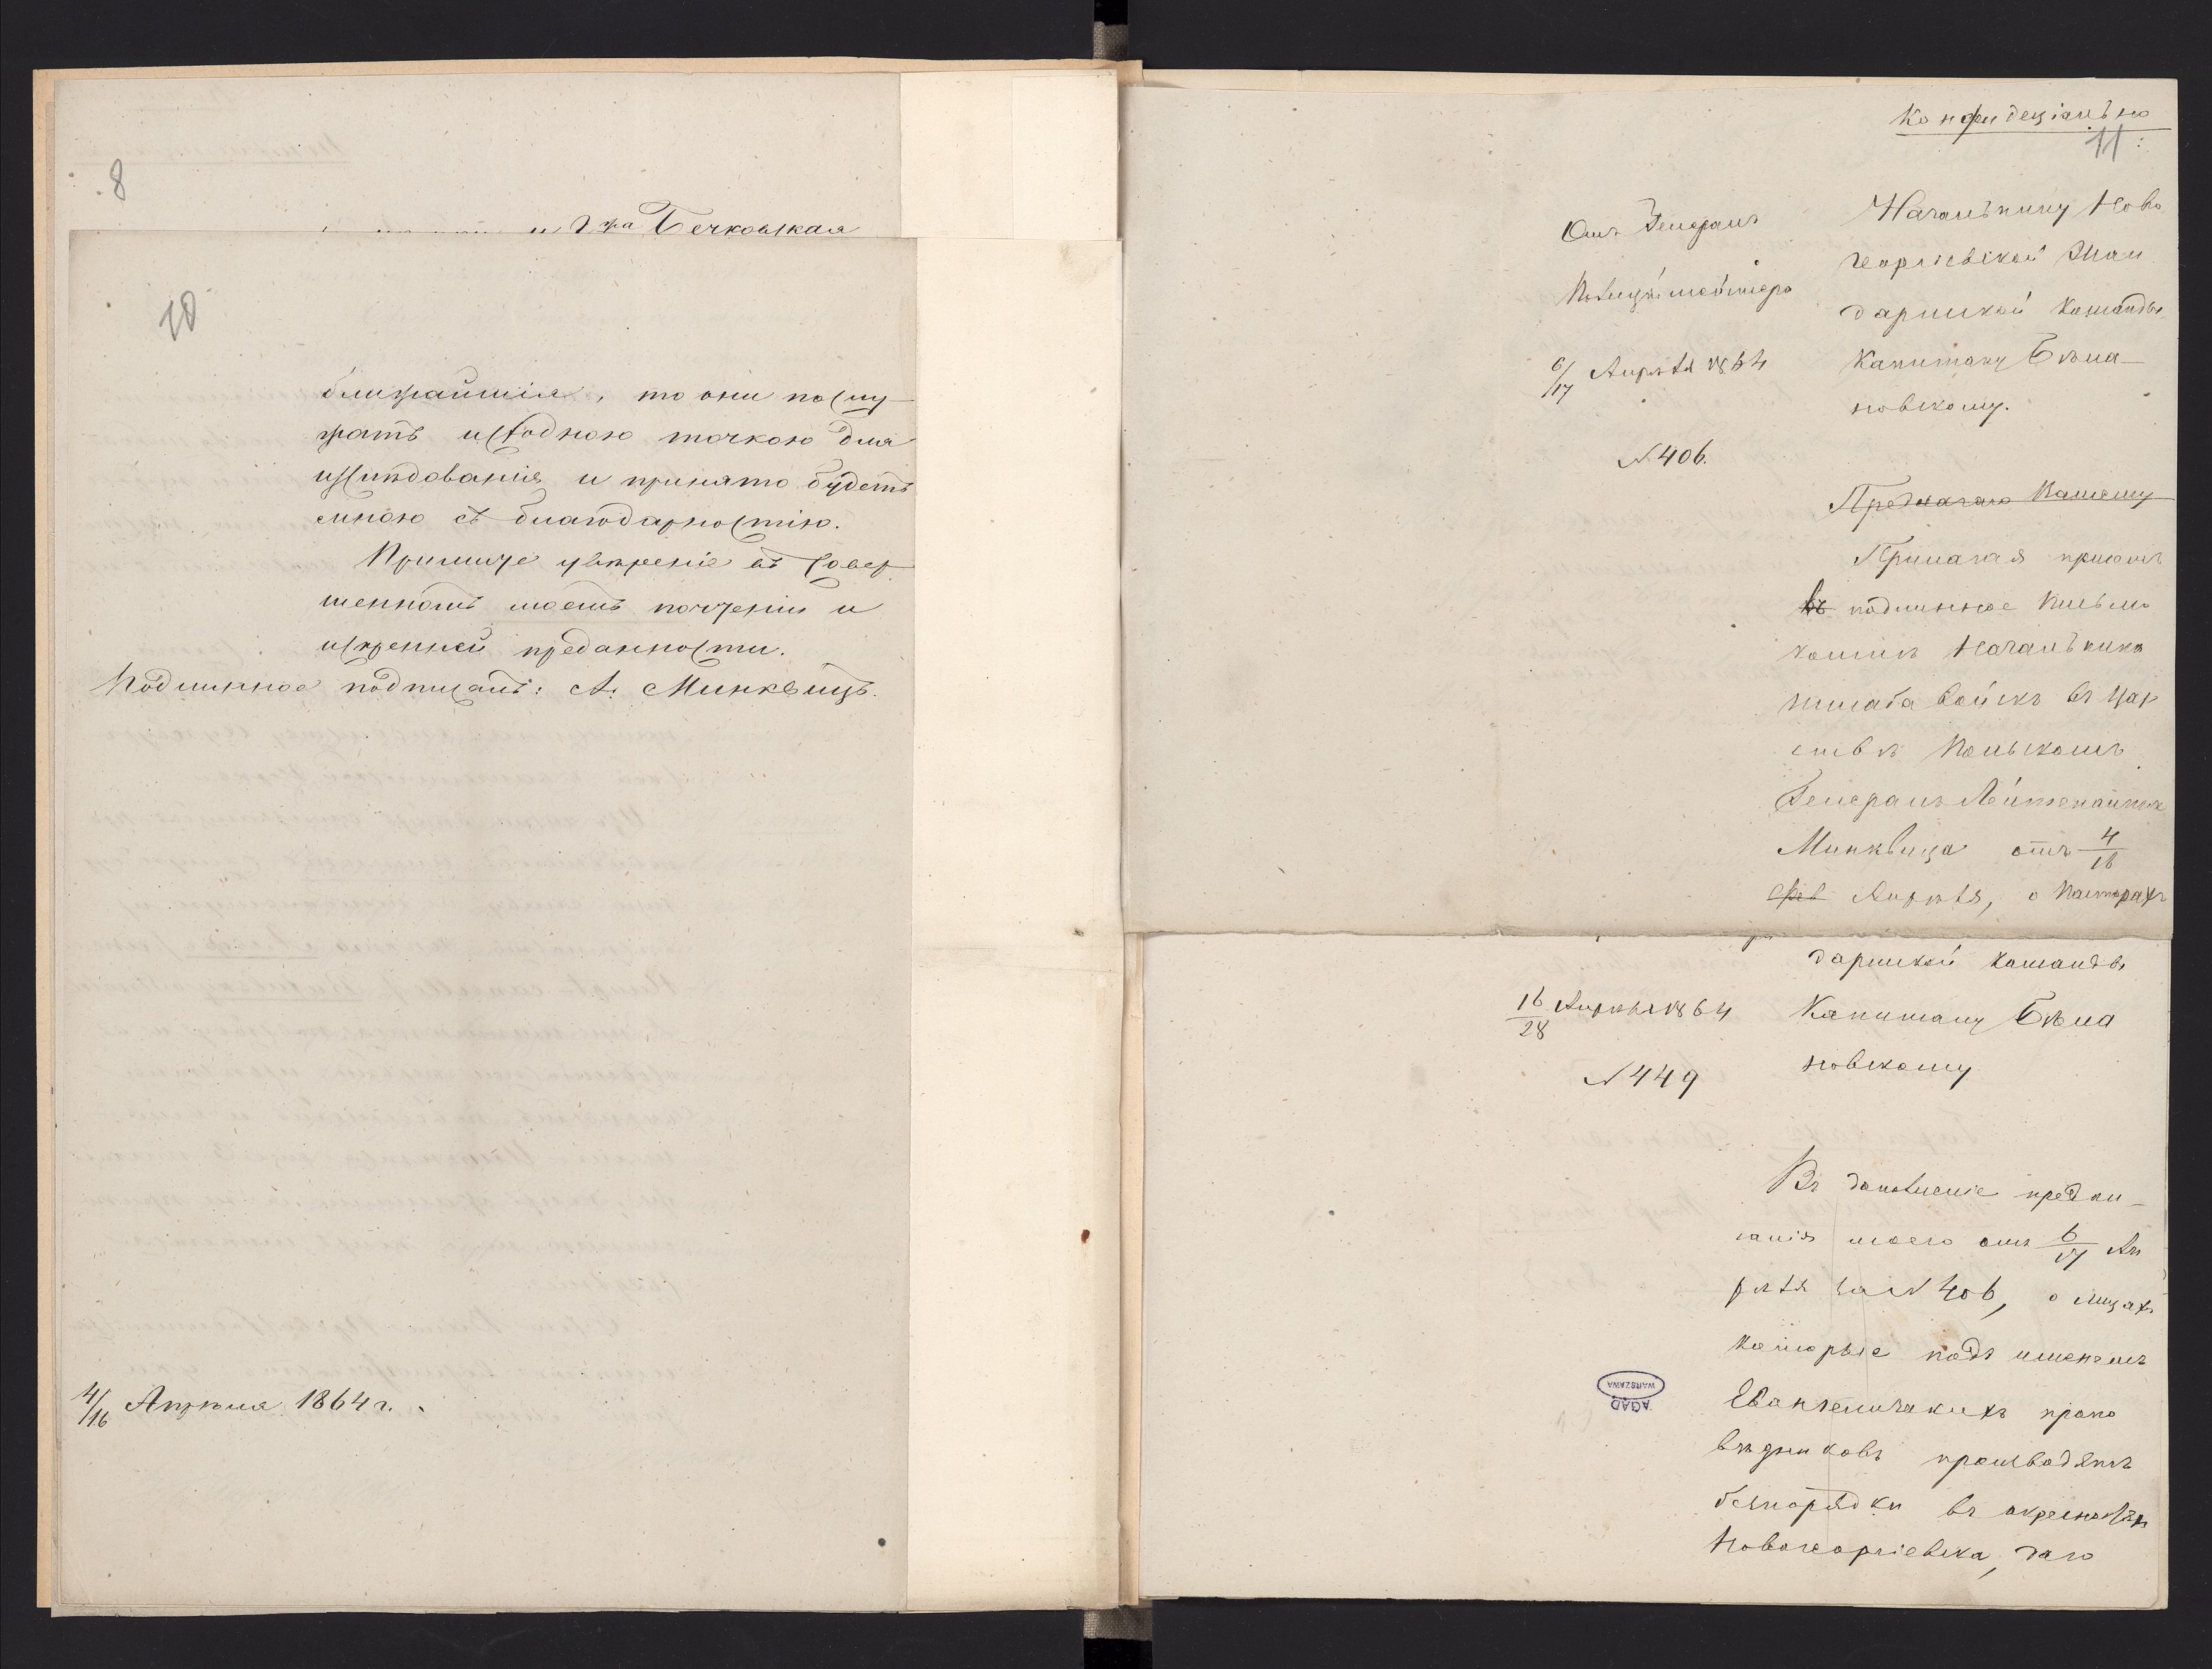 8
и Г-жа Бечковская
10
ближайшія, то они послу-
жатъ исходною точкою для
изслѣдованія и принято будетъ
мною съ благодарностію.
Примите увѣреніе въ совер-
шенномъ моемъ почтеніи и
искренней преданности.
Подлинное подписалъ: А. Минквицъ.
4/16 Апрѣля 1864 г.
Конфидеціально
11
Отъ Генералъ
Полицiймейстера
6/17 Апрѣля 1864
№ 406.
Начальнику Ново
георгіевской Жан
дармской Команды
Капитану Бѣла-
новскому.
Предлагаю Вашему
Прилагая присемъ
въ подлинное письмо
копію Начальника
штаба войскъ въ Цар
ствѣ Польскомъ
Генералъ Лейтенанта
Минквица отъ 4/16
Фев Апрѣля, о Пасторахъ
дармской команды
16/28 Апрѣля 1864
Капитану Бѣла
новскому
№ 449
Въ дополненіе предпи-
санія моего отъ 6/17 Ап
рѣля за № 406, о лицахъ
которые подъ именемъ
Евангелическихъ пропо
вѣдниковъ производятъ
безпорядки въ окрестностяхъ
Новогеоргіевска, даю
AGAD
WARSZAWA